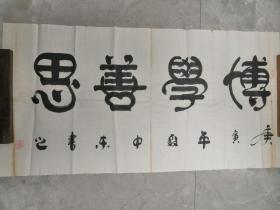 博學善思
庚寅年
中 書